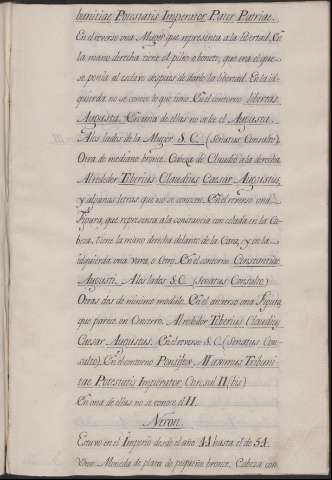 bunitiae Potestatis Imperator Pater Patriae.
En el reverso una Muger que representa a la libertad. En
la mano derecha tiene el pileo o bonete, que era el que
se ponia al esclavo despues de darle la libertad. En la iz-
quierda no se conoce lo que tiene. En el contorno libertas
Augusta. En una de ellas no se lee el Augusta.
A los lados de la Muger S. C. (Senatus Consulto).
Otra de mediano bronce. Cabeza de Claudio a la derecha.
Alrededor Tiberius Claudius Caesar Augustus,
y algunas letras que no se conocen. En el reverso una
Figura, que representa a la constancia con celada en la Ca-
beza, tiene la mano derecha delante de la Cara, y en la
izquierda una vara, o Cetro. En el contorno Constantiae
Augusti. A los lados S. C. (Senatus Consulto)
Otras dos de minimo modulo. En el anverso una Figura
que parece un Canserro. Alrededor Tiberius Claudius
Caesar Augustus. En el reverso S. C. (Senatus Con-
sulto). En el contorno Pontifex Maximus Tribuni-
tiae Potestatis Imperator Consul II (bis)
En una de ellas no se conoce el II.
Neron.
Estuvo en el Imperio desde el año 44 hasta el de 54.
Una Moneda de plata de pequeño bronce. Cabeza con